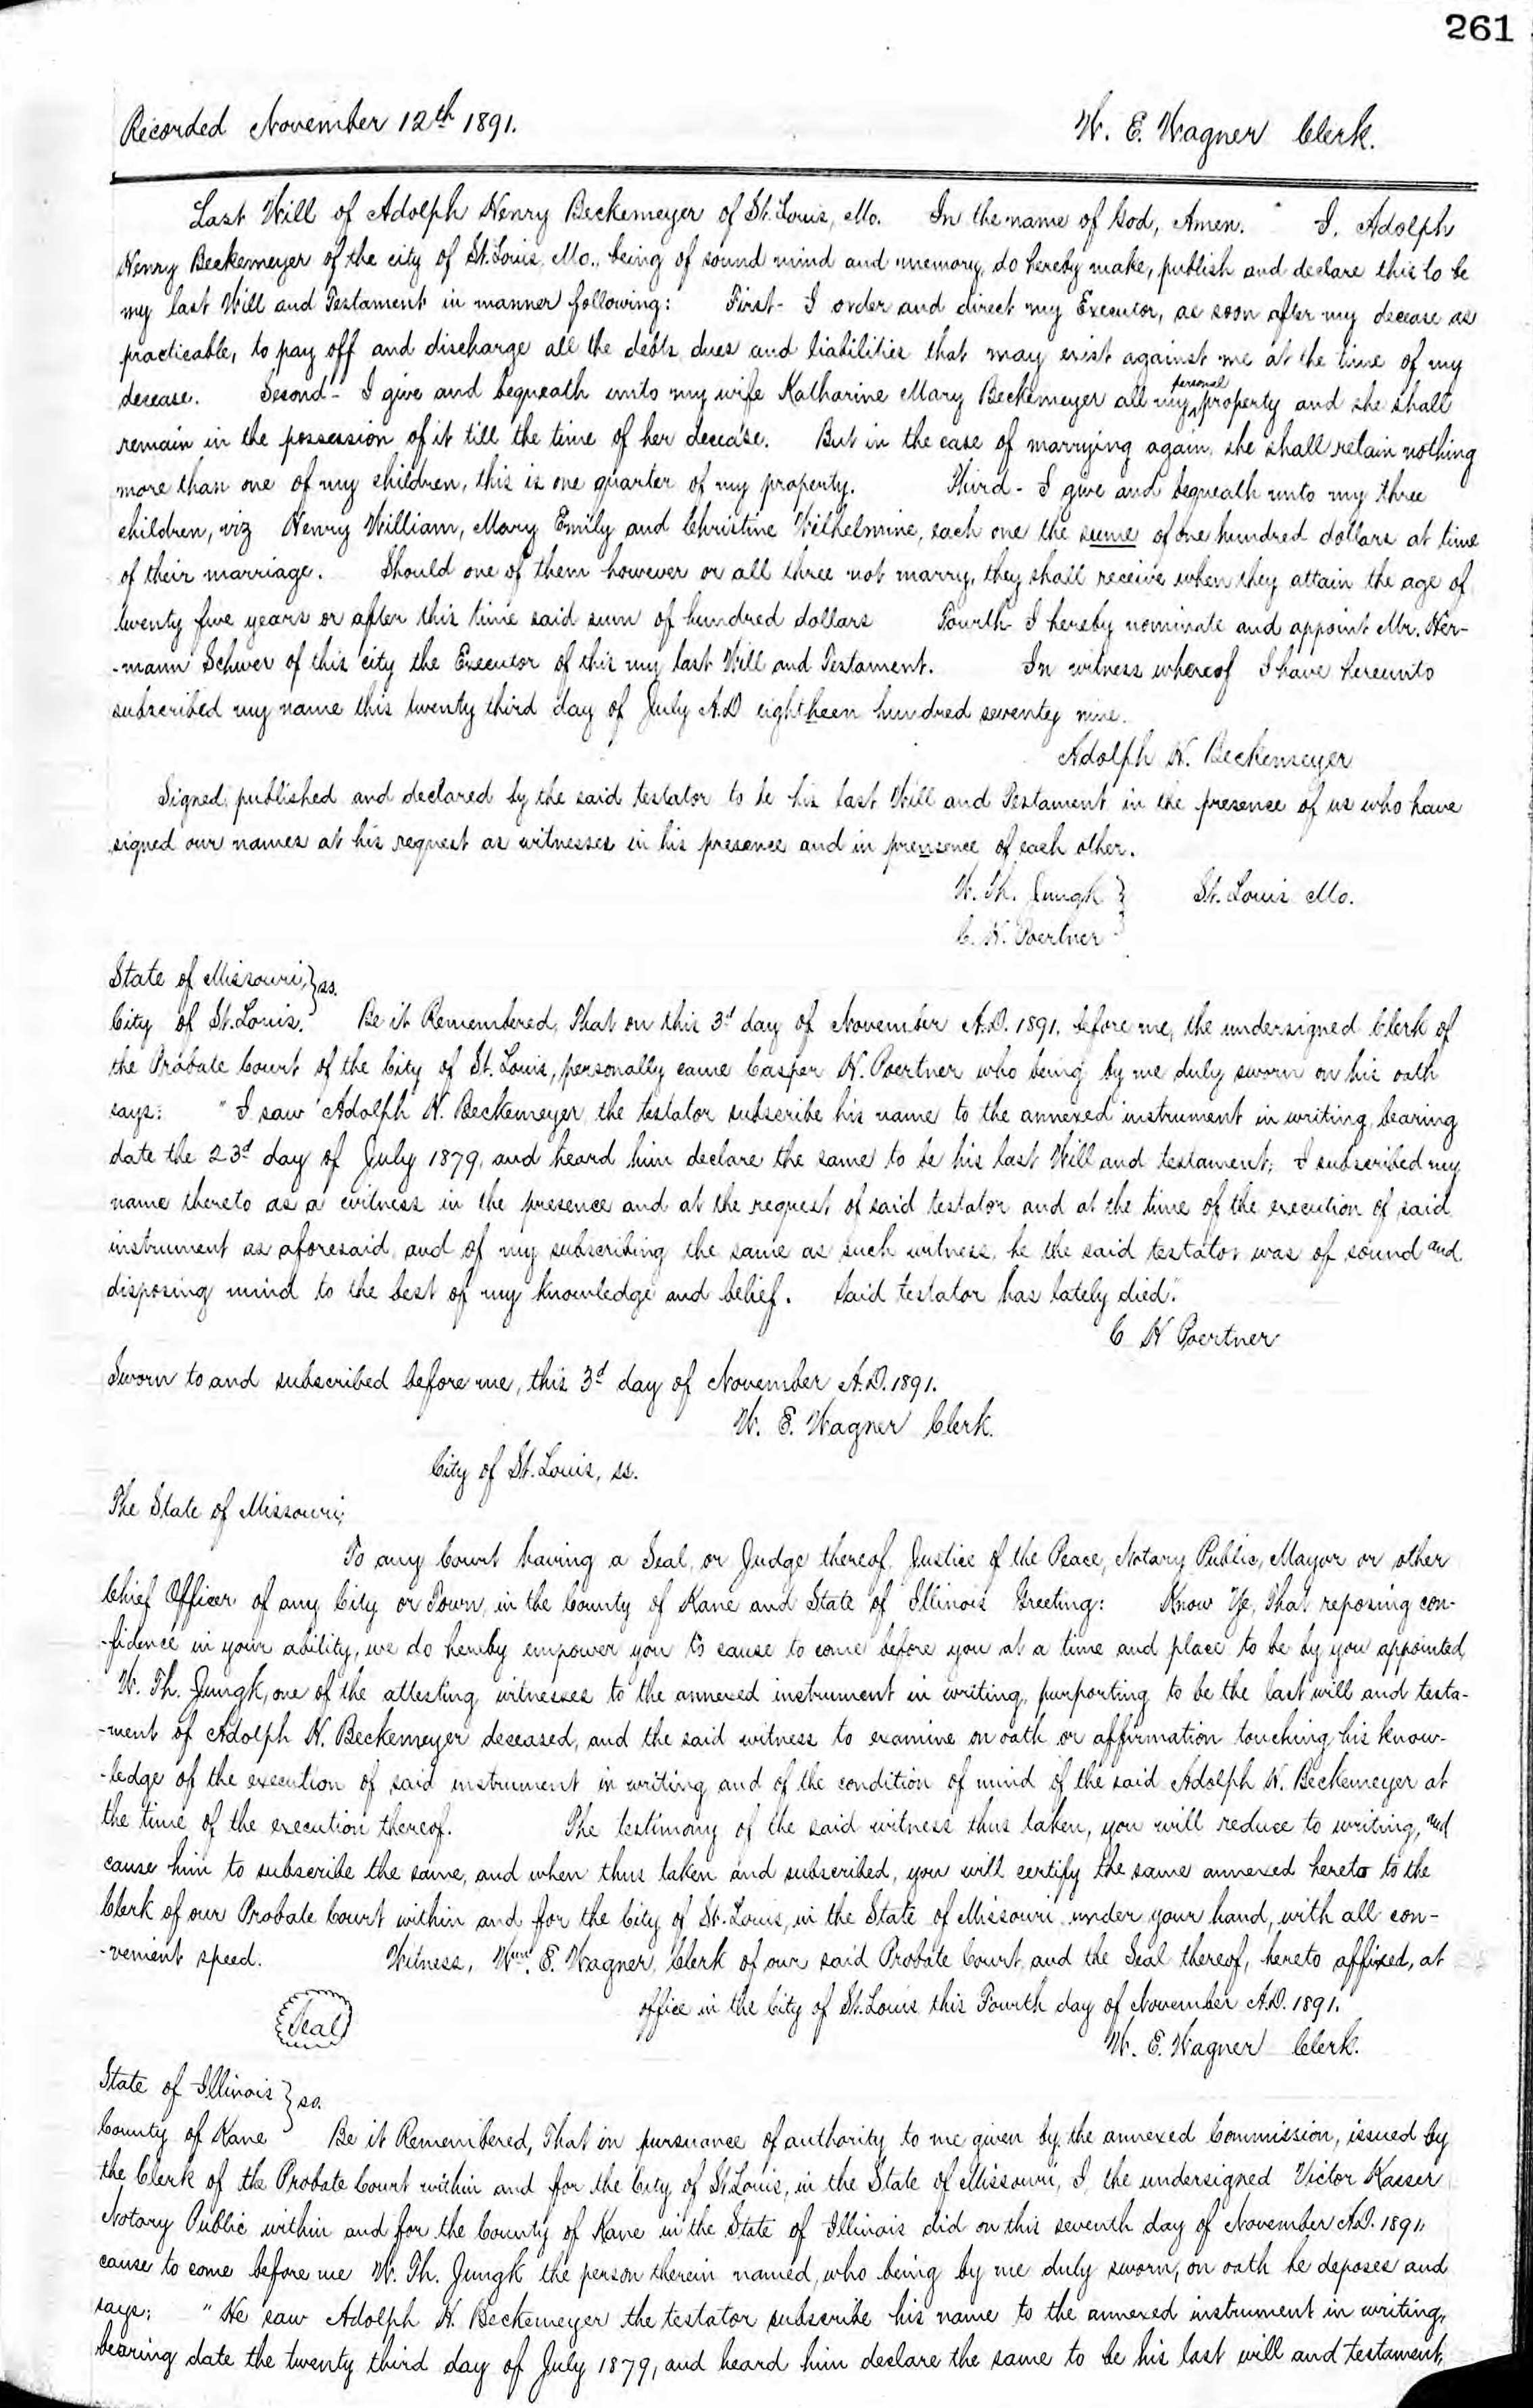 261
Recorded November 12th 1891. W. E. Wagner Clerk.
Last Will of Adolph Henry Beckemeyer of St. Louis, Mo. In the name of God, Amen. I, Adolph
Henry Beckemeyer of the city of St. Louis, Mo., being of sound mind and memory, do hereby make, publish and declare this to be
my last Will and Testament in manner following: First- I order and direct my Executor, as soon after my decease as
practicable, to pay off and discharge all the debts, dues and liabilities that may exist against me at the time of my
decease. Second- I give and bequeath unto my wife Katharine Mary Beckemeyer all my personal property and she shall
remain in the possession of it till the time of her decease. But in the case of marrying again, she shall retain nothing
more than one of my children, this is one quarter of my property. Third- I give and bequeath unto my three
children, viz Henry William, Mary Emily and Christine Wilhelmine, each one the sume of one hundred dollars at time
of their marriage. Should one of them however or all three not marry, they shall receive when they attain the age of
twenty five years or after this time said sum of hundred dollars Fourth- I hereby nominate and appoint Mr. Her-
-mann Schwer of this city the Executor of this my last Will and Testament. In witness whereof I have hereunto
subscribed my name this twenty third day of July A.D eightheen hundred seventy nine.
Adolph H. Beckemeyer
Signed, published and declared by the said testator to be his last Will and Testament in the presence of us who have
signed our names at his request as witnesses in his presence and in prensence of each other.
W. Th. Jungk } St. Louis Mo.
C. H. Poertner
State of Missouri, } ss.
City of St. Louis. Be it Remembered, That on this 3d day of November A.D. 1891. before me, the undersigned Clerk of
the Probate Court of the City of St. Louis, personally came Casper H. Poertner who being by me duly sworn on his oath
says: "I saw Adolph H. Beckemeyer the testator subscribe his name to the annexed instrument in writing bearing
date the 23d day of July 1879, and heard him declare the same to be his last Will and testament; I subscribed my
name thereto as a witness in the presence and at the request of said testator and at the time of the execution of said
instrument as aforesaid, and of my subscribing the same as such witness, he the said testator was of sound and
disposing mind to the best of my knowledge and belief. Said testator has lately died."
C H Poertner
Sworn to and subscribed before me, this 3d day of November A.D. 1891.
W. E. Wagner Clerk.
City of St. Louis, ss.
The State of Missouri;
To any Court having a Seal, or Judge thereof, Justice of the Peace, Notary Public, Mayor or other
Chief Officer of any City or Town, in the County of Kane and State of Illinois Greeting: Know Ye, That reposing con-
-fidence in your ability, we do hereby empower you to cause to come before you at a time and place to be by you appointed,
W. Th. Jungk, one of the attesting witnesses to the annexed instrument in writing, purporting to be the last will and testa-
-ment of Adolph H. Beckemeyer deceased, and the said witness to examine on oath or affirmation touching his know-
-ledge of the execution of said instrument in writing and of the condition of mind of the said Adolph H. Beckemeyer at
the time of the execution thereof. The testimony of the said witness thus taken, you will reduce to writing, and
cause him to subscribe the same, and when thus taken and subscribed, you will certify the same annexed hereto to the
Clerk of our Probate Court within and for the City of St. Louis, in the State of Missouri under your hand, with all con-
-venient speed. Witness, Wm. E. Wagner, Clerk of our said Probate Court, and the Seal thereof, hereto affixed, at
office in the City of St. Louis this Fourth day of November A.D. 1891.
Seal
W. E. Wagner Clerk.
State of Illinois } ss.
County of Kane Be it Remembered, That in pursuance of authority to me given by the annexed Commission, issued by
the Clerk of the Probate Court within and for the City of St. Louis, in the State of Missouri, I, the undersigned Victor Kaeser
Notary Public within and for the County of Kane in the State of Illinois did on this seventh day of November A.D. 1891,
cause to come before me W. Th. Jungk the person therein named, who being by me duly sworn, on oath he deposes and
says: "He saw Adolph H. Beckemeyer the testator subscribe his name to the annexed instrument in writing,
bearing date the twenty third day of July 1879, and heard him declare the same to be his last will and testament,